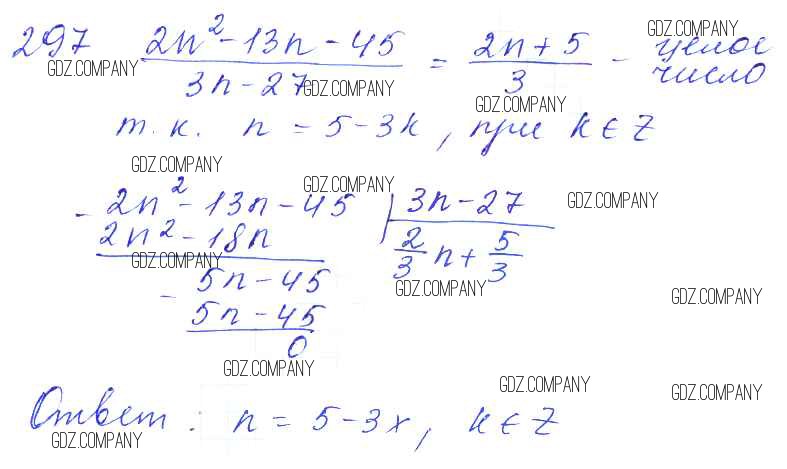 297 (2n² - 13n - 45)/(3n - 27) = (2n + 5)/3 - целое число
т.к. n = 5 - 3k, при k ∈ Z
- 2n² - 13n - 45 | 3n - 27
2n² - 18n | 2/3 n + 5/3
- 5n - 45
5n - 45
0
Ответ: n = 5 - 3x, k ∈ Z
GDZ.COMPANY
GDZ.COMPANY
GDZ.COMPANY
GDZ.COMPANY
GDZ.COMPANY
GDZ.COMPANY
GDZ.COMPANY
GDZ.COMPANY
GDZ.COMPANY
GDZ.COMPANY
GDZ.COMPANY
GDZ.COMPANY
GDZ.COMPANY
GDZ.COMPANY